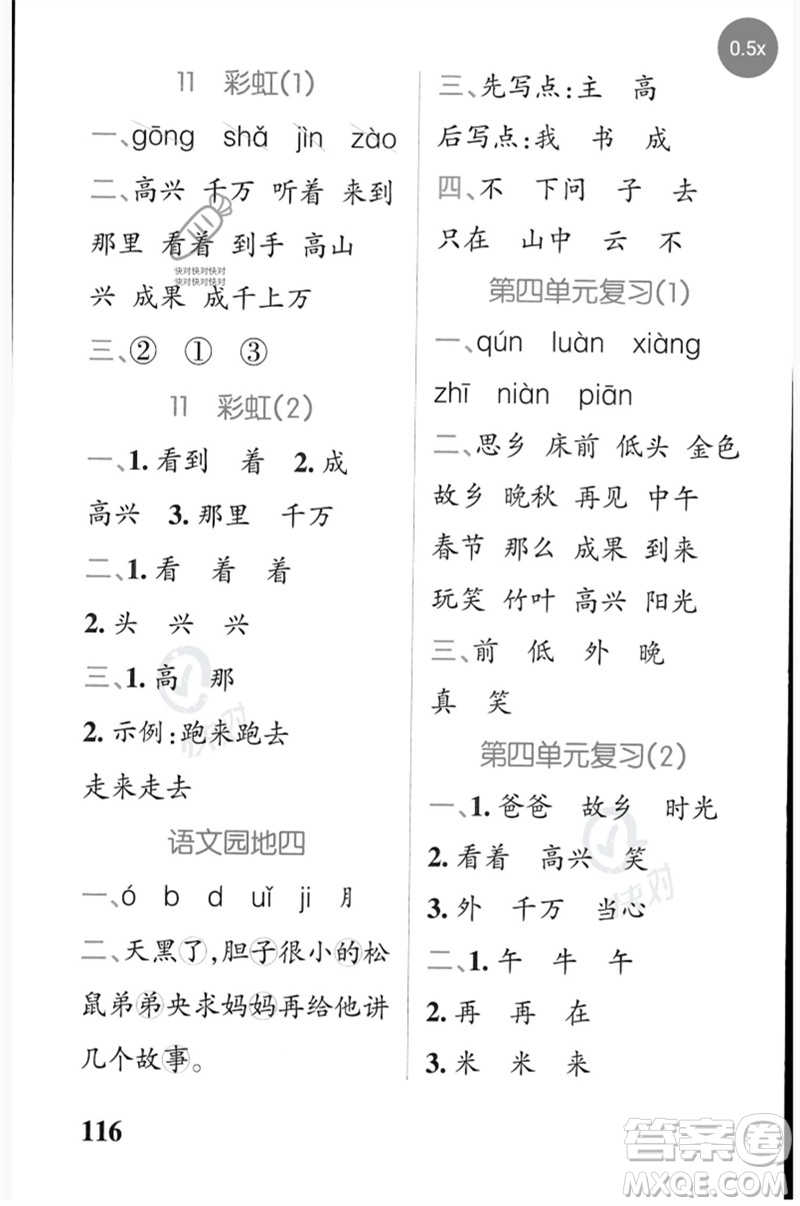 0.5x
11 彩虹(1)
一、gōng shǎ jìn zào
二、高兴 千万 听着 来到
那里 看着 到手 高山
快对快对快对
快对快对快对
兴 成果 成千上万
三、② ① ③
11 彩虹(2)
一、1. 看到 着 2. 成
高兴 3. 那里 千万
二、1. 看 着 着
2. 头 兴 兴
三、1. 高 那
2. 示例:跑来跑去
走来走去
语文园地四
一、ó b d uǐ ji 月
二、天黑了,胆子很小的松
鼠弟弟央求妈妈再给他讲
几个故事。
116
三、先写点:主 高
后写点:我 书 成
四、不 下问 子 去
只在 山中 云 不
第四单元复习(1)
一、qún luàn xiàng
zhī niàn piān
二、思乡 床前 低头 金色
故乡 晚秋 再见 中午
春节 那么 成果 到来
玩笑 竹叶 高兴 阳光
三、前 低 外 晚
真 笑
第四单元复习(2)
一、1. 爸爸 故乡 时光
2. 看着 高兴 笑
3. 外 千万 当心
二、1. 午 牛 午
2. 再 再 在
3. 米 米 来
快对
快对
答案圈
MXQE.COM